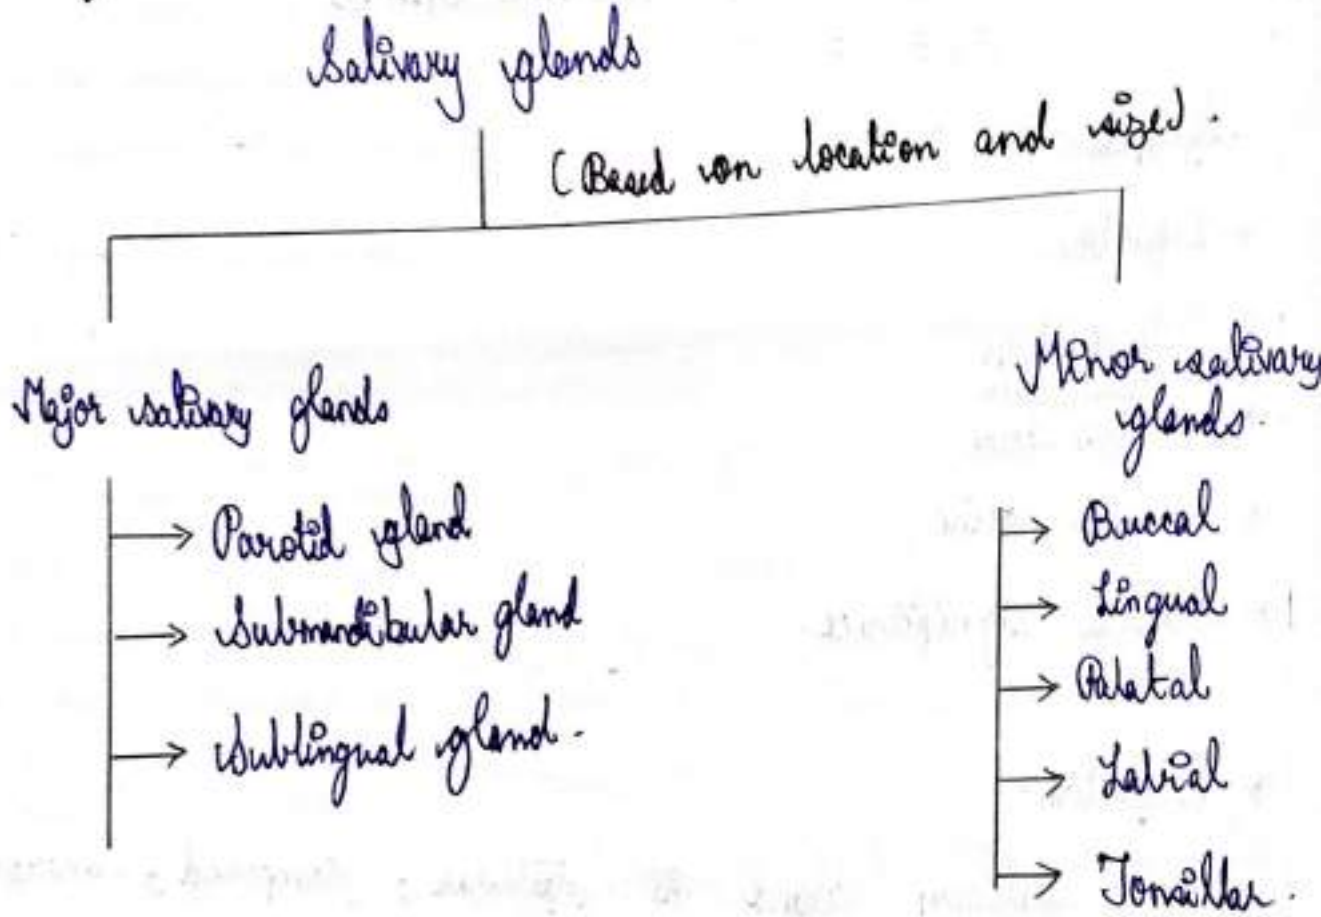 Salivary glands
(Based on location and size).
Major salivary glands
Parotid gland
Submandibular gland
Sublingual gland.
Minor salivary
glands.
Buccal
Lingual
Palatal
Labial
Tonsillar.